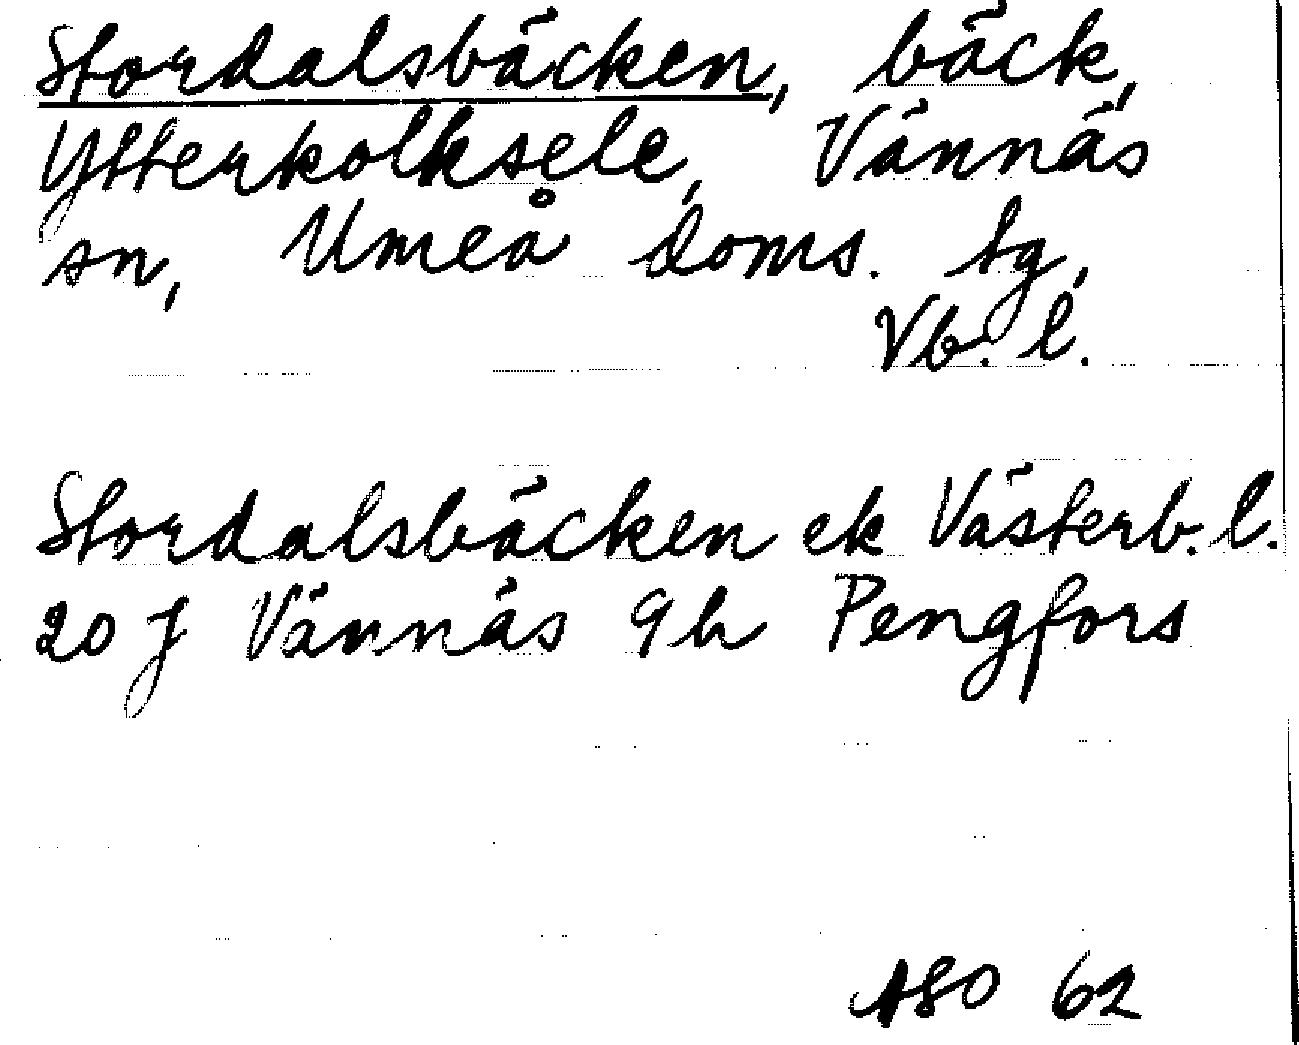 Stordalsbäcken, bäck,
Ytterkolksele, Vännäs
sn, Umeå doms. tg,
Vb. l.
Stordalsbäcken ek Västerb. l.
20 J Vännäs 9 h Pengfors
ASO 62